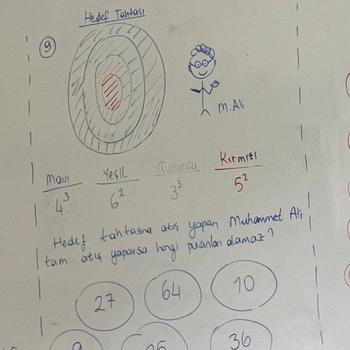 Hedef Tahtası
9
M.Ali
Mavi Yeşil Turuncu Kırmızı
4³ 6² 3³ 5²
Hedef tahtasına atış yapan Muhammet Ali
tam atış yaparsa hangi puanları alamaz?
27 64 10
9 25 36